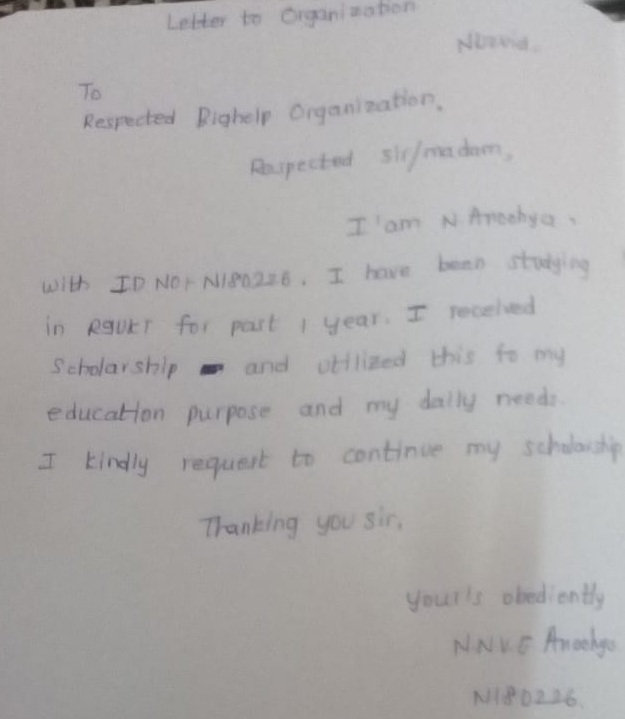 Letter to Organization
Nuzvid.
To
Respected Bighelp Organization,
Respected sir/madam,
I'am N Anoohya.
with ID NO:- N180226. I have been studying
in RGUKT for past 1 year. I received
Scholarship and utilized this to my
education purpose and my daily needs.
I kindly request to continue my scholarship
Thanking you sir,
Your's obediently
N N V.G Anoohya
N180226.